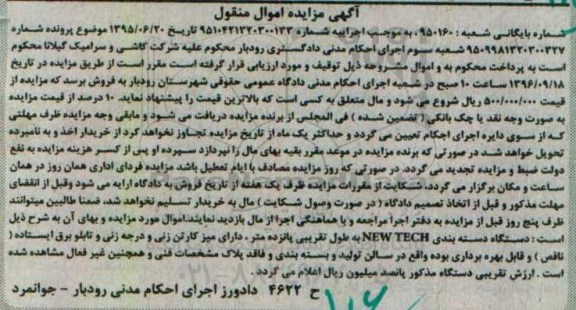 آگهی مزایده اموال منقول
شماره بایگانی شعبه : ۹۵۰۱۶۰، به موجب اجراییه شماره ۹۵۱۰۴۲۱۳۲۰۳۰۰۱۳۳ تاریخ ۱۳۹۵/۰۶/۲۰ موضوع پرونده شماره
۹۵۰۹۹۸۱۳۲۰۳۰۰۳۲۷ شعبه سوم اجرای احکام مدنی دادگستری رودبار محکوم علیه شرکت کاشی و سرامیک گیلانا محکوم
است به پرداخت محکوم به و اموال مشروحه ذیل توقیف و مورد ارزیابی قرار گرفته است مقرر است از طریق مزایده در تاریخ
۱۳۹۶/۰۹/۱۸ ساعت ۱۰ صبح در شعبه اجرای احکام مدنی دادگاه عمومی حقوقی شهرستان رودبار به فروش برسد که مزایده از
قیمت ۵۰۰/۰۰۰/۰۰۰ ریال شروع می شود و مال متعلق به کسی است که بالاترین قیمت را پیشنهاد نماید. ۱۰ درصد از قیمت مزایده
به صورت وجه نقد یا چک بانکی ( تضمین شده ) فی المجلس از برنده مزایده دریافت می شود و مابقی وجه مزایده ظرف مهلتی
که از سوی دایره اجرای احکام تعیین می گردد و حداکثر یک ماه از تاریخ مزایده تجاوز نخواهد کرد از خریدار اخذ و به نامبرده
تحویل خواهد شد در صورتی که برنده مزایده در موعد مقرر بقیه بهای مال را نپردازد سپرده او پس از کسر هزینه مزایده به نفع
دولت ضبط و مزایده تجدید می گردد. در صورتی که روز مزایده مصادف با ایام تعطیل باشد. مزایده فردای اداری همان روز در همان
ساعت و مکان برگزار می گردد. شکایت از مقررات مزایده ظرف یک هفته از تاریخ فروش به دادگاه ارایه می شود وقبل از انقضای
مهلت مذکور و قبل از اتخاذ تصمیم دادگاه ( در صورت وصول شکایت ) مال به خریدار تسلیم نخواهد شد، ضمنا طالبین میتوانند
ظرف پنج روز قبل از مزایده به دفتر اجرا مراجعه و با هماهنگی اجرا از مال بازدید نمایند.اموال مورد مزایده و بهای آن به شرح ذیل
است : دستگاه دسته بندی NEW TECH به طول تقریبی پانزده متر ، دارای میز کارتن زنی و درجه زنی و تابلو برق ایستاده (
ناقص ) و قابل بهره برداری بوده واقع در سالن تولید و بسته بندی و فاقد پلاک مشخصات فنی و همچنین غیر فعال مشاهده شده
است . ارزش تقریبی دستگاه مذکور پانصد میلیون ریال اعلام می گردد .
ح ۴۶۲۲ دادورز اجرای احکام مدنی رودبار - جوانمرد